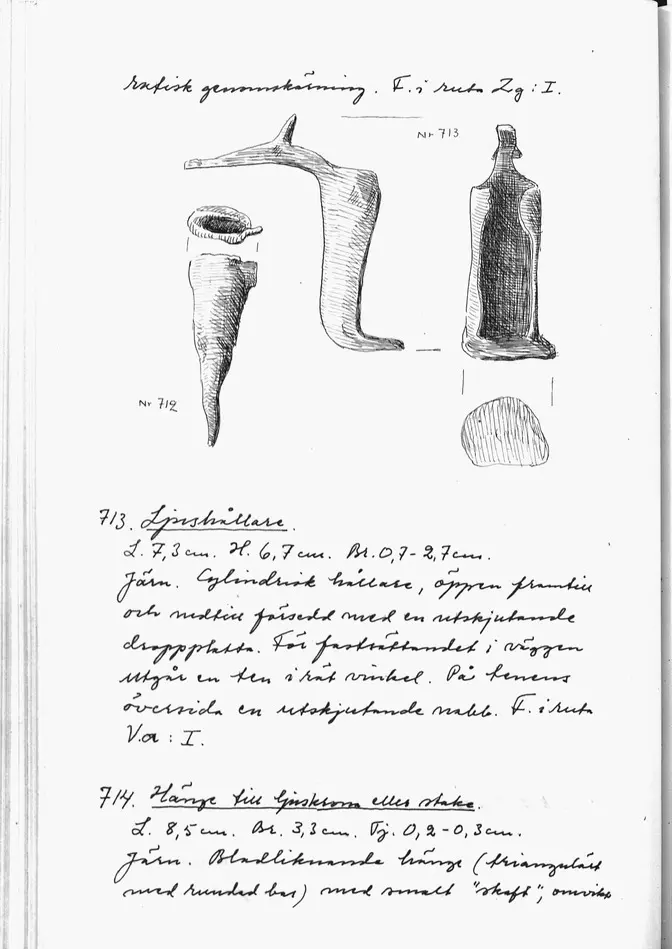 ratisk genomskärning. F. i ruta Zg : I.
Nr 713
Nr 712
713. Ljushållare.
L. 7,3 cm. H. 6,7 cm. Br. 0,7 - 2,7 cm.
Järn. Cylindrisk hållare, öppen framtill
och nedtill försedd med en utskjutande
droppplatta. För fastsättandet i väggen
utgår en ten i rät vinkel. På tenens
översida en utskjutande nabb. F. i ruta
Va : I.
714. Hänge till ljuskrona eller stake.
L. 8,5 cm. Br. 3,3 cm. Tj. 0,2 - 0,3 cm.
Järn. Bladliknande hänge (triangulärt
med rundad bas) med smalt "skaft", omvikt